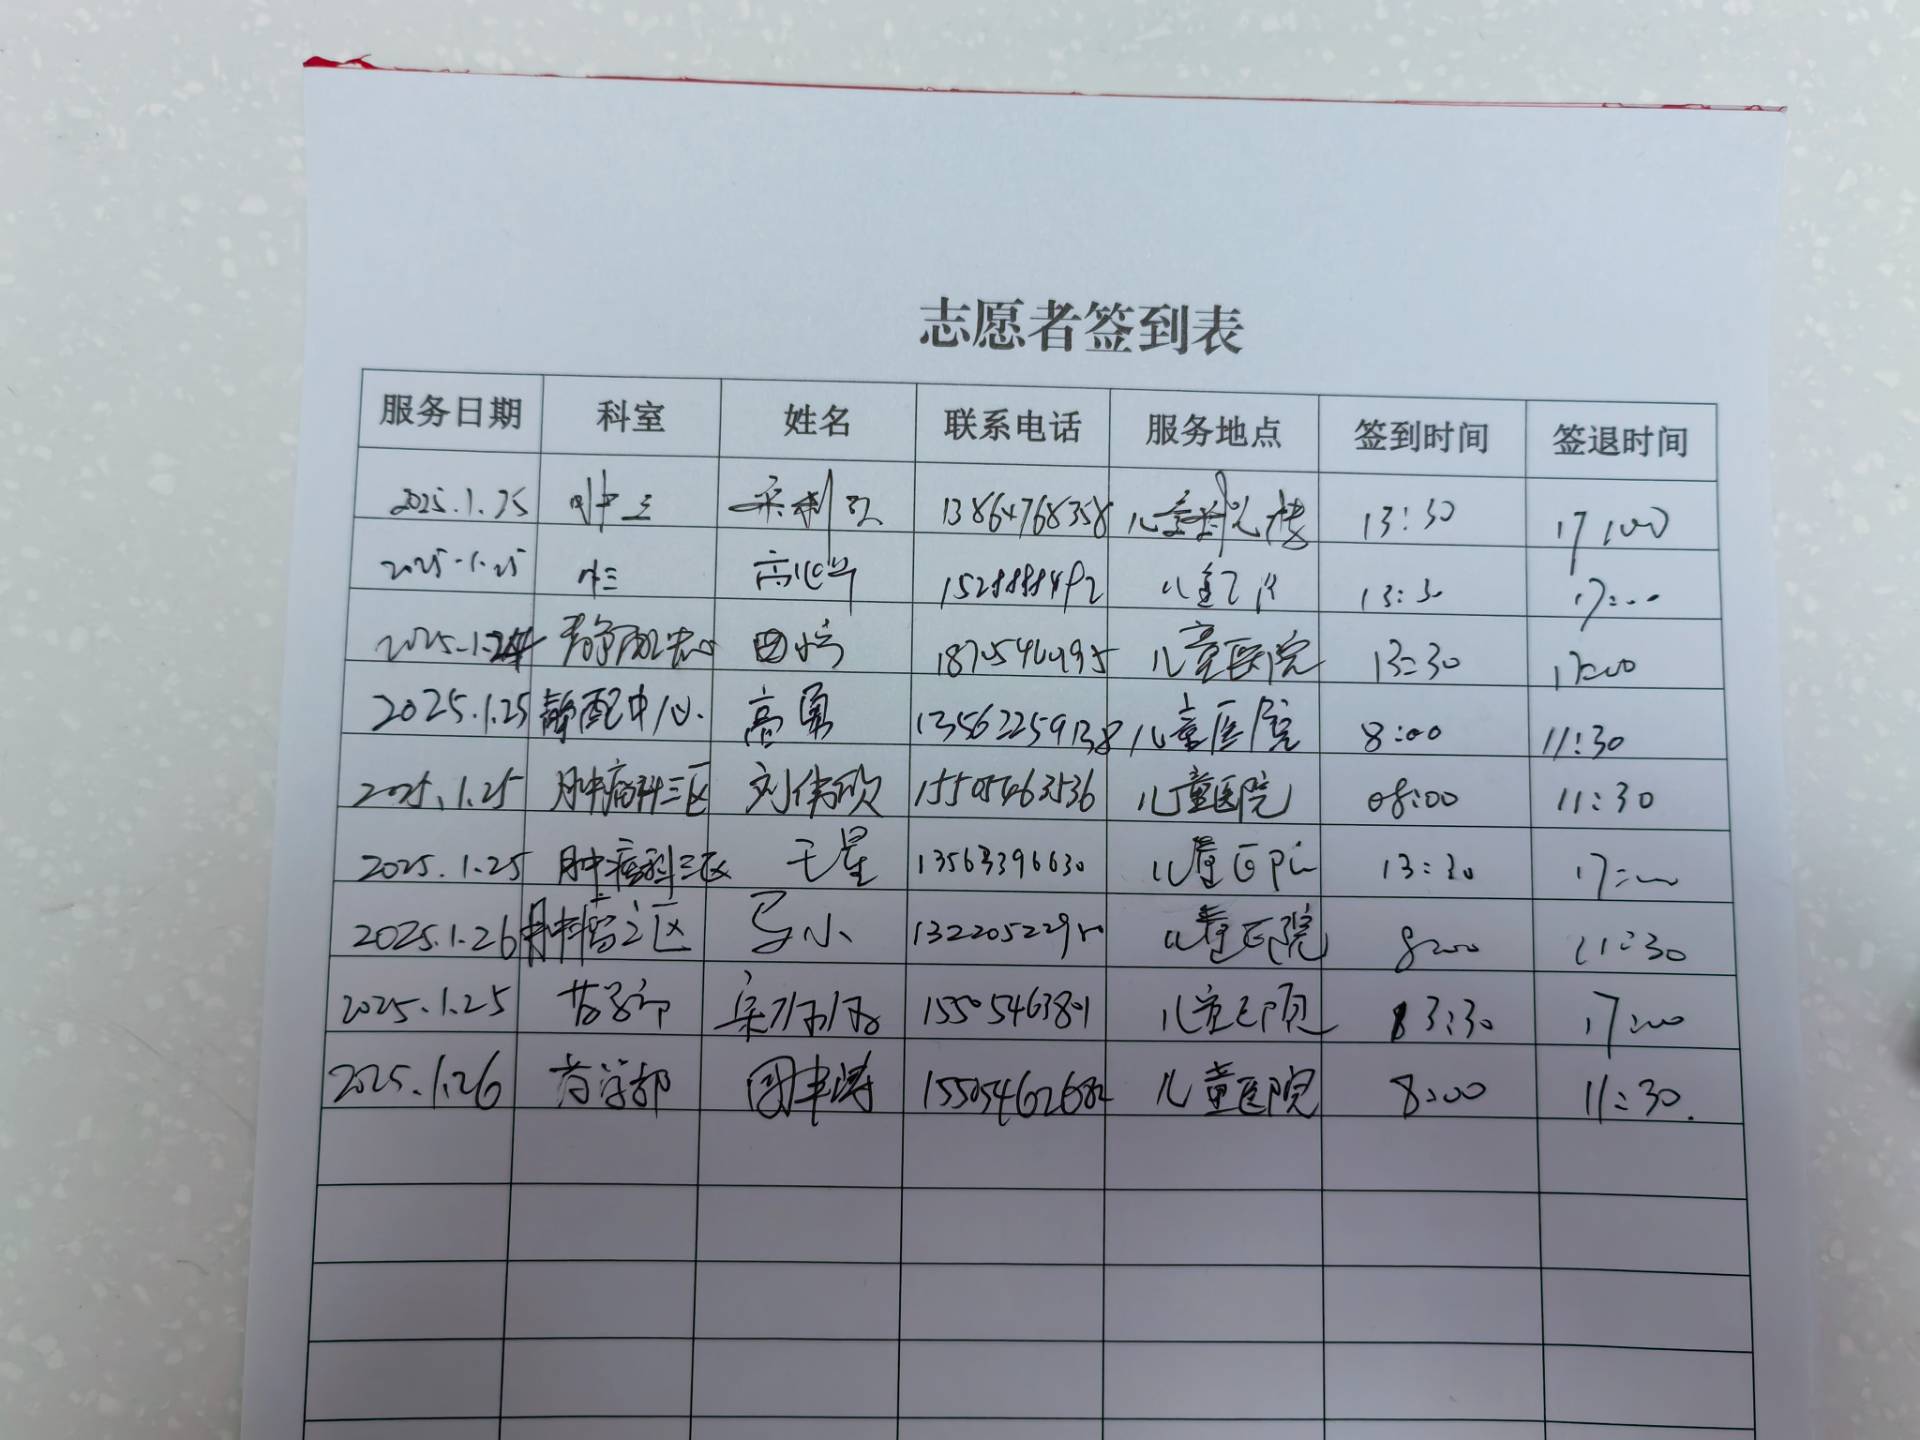 志愿者签到表
服务日期 科室 姓名 联系电话 服务地点 签到时间 签退时间
2025.1.25 肿三 13864768358 儿童 13:30 17:00
2025.1.25 肿三 13:30 17:00
静配中心 儿童医院 13:30 17:00
2025.1.25 静配中心 高勇 13562259138 儿童医院 8:00 11:30
2025.1.25 肿瘤科三区 刘伟欣 15505463536 儿童医院 08:00 11:30
2025.1.25 肿瘤科三区 王星 13563396630 儿童医院 13:30 17:00
2025.1.26 马小 儿童医院 8:00 11:30
2025.1.25 药学部 15505463801 儿童医院 13:30 17:00
2025.1.26 药学部 儿童医院 8:00 11:30.